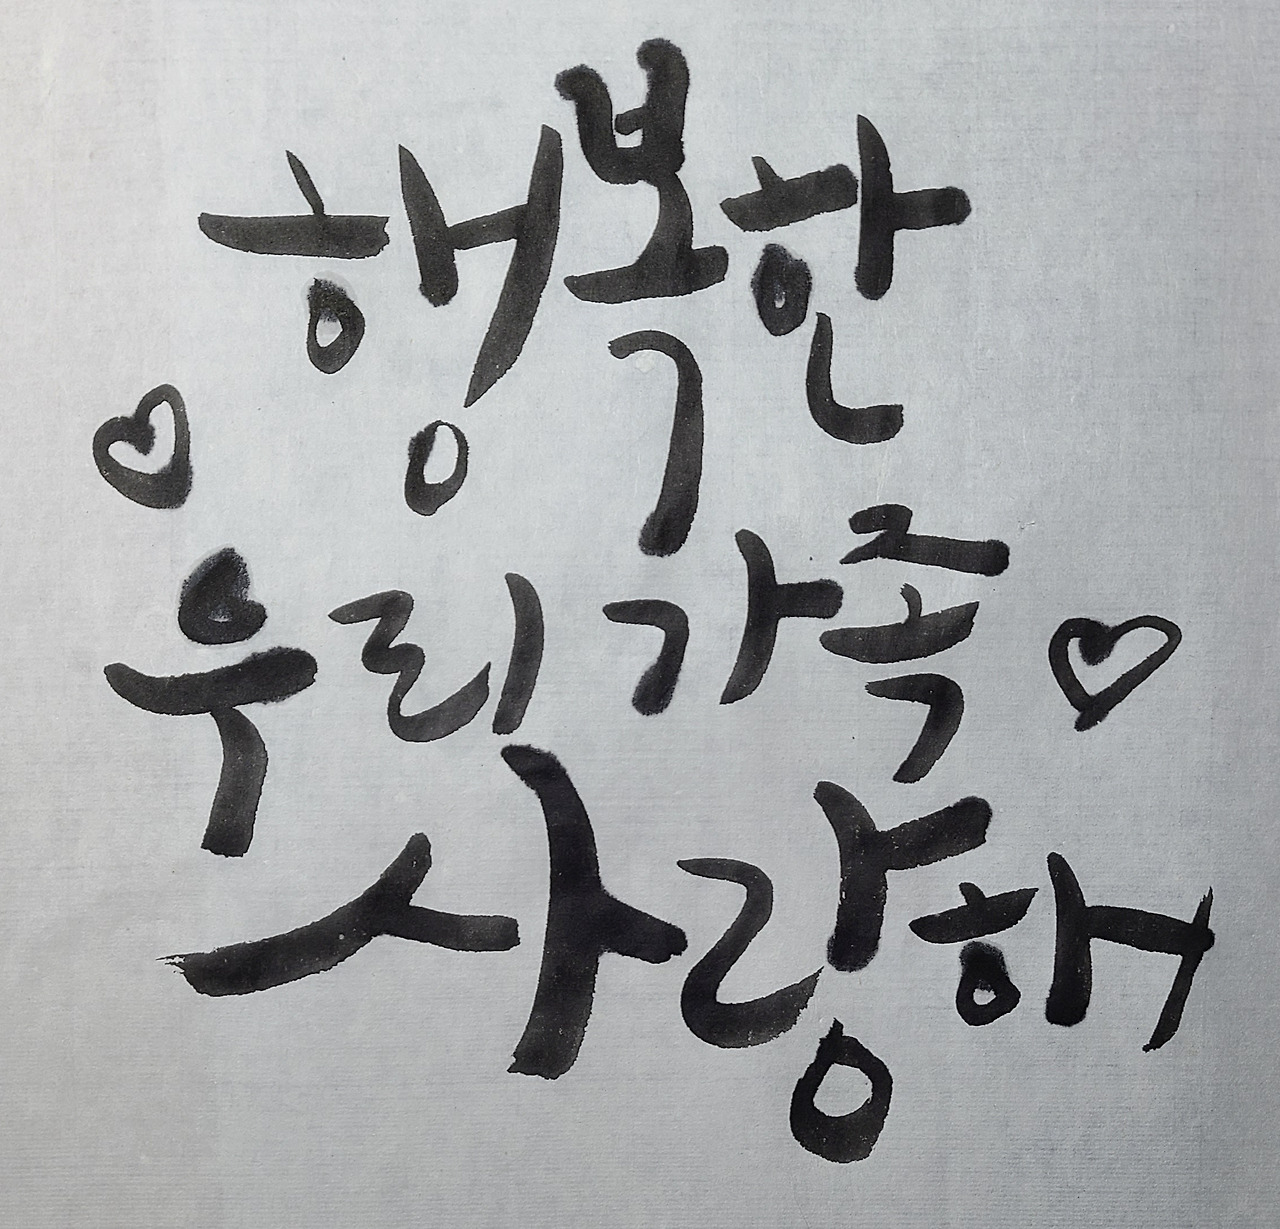 행복한
우리가족
사랑해